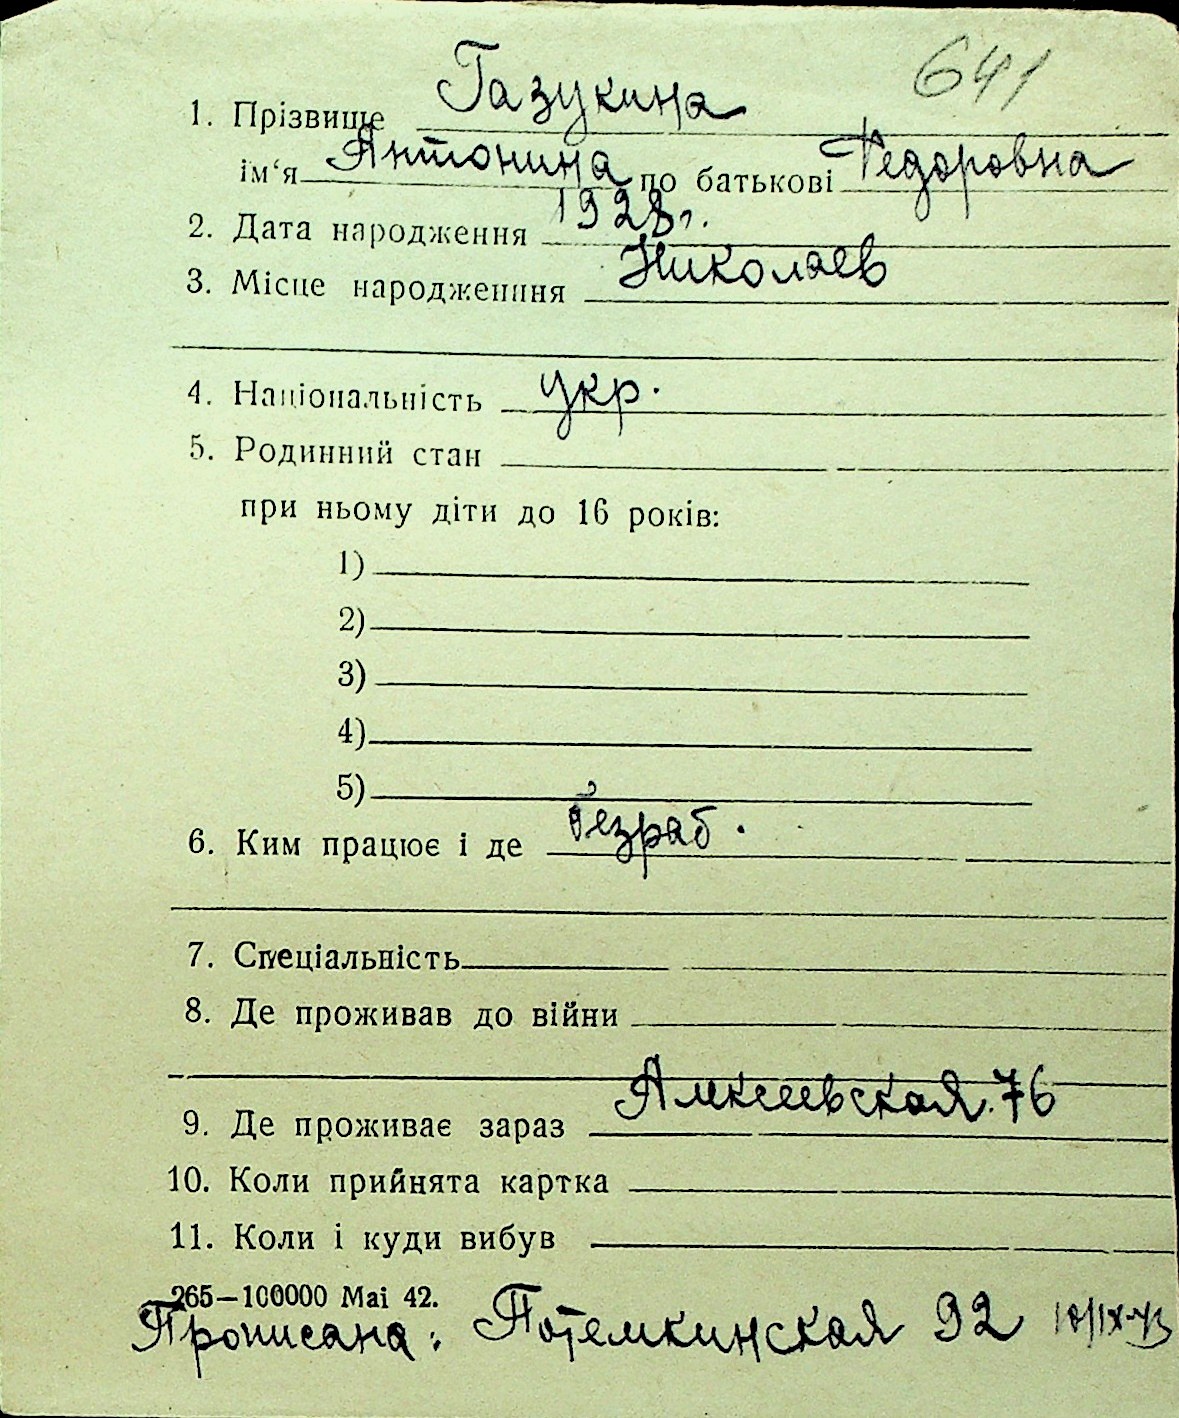 641
1. Прізвище Газукина
ім'я Антонина по батькові Федоровна
2. Дата народження 1928 г.
3. Місце народженння Николаев
4. Національність укр.
5. Родинний стан
при ньому діти до 16 років:
1)
2)
3)
4)
5)
6. Ким працює і де безраб.
7. Спеціальність
8. Де проживав до війни
9. Де проживає зараз Алексеевская 76
10. Коли прийнята картка
11. Коли і куди вибув
265—100000 Mai 42.
Прописана: Потемкинская 92